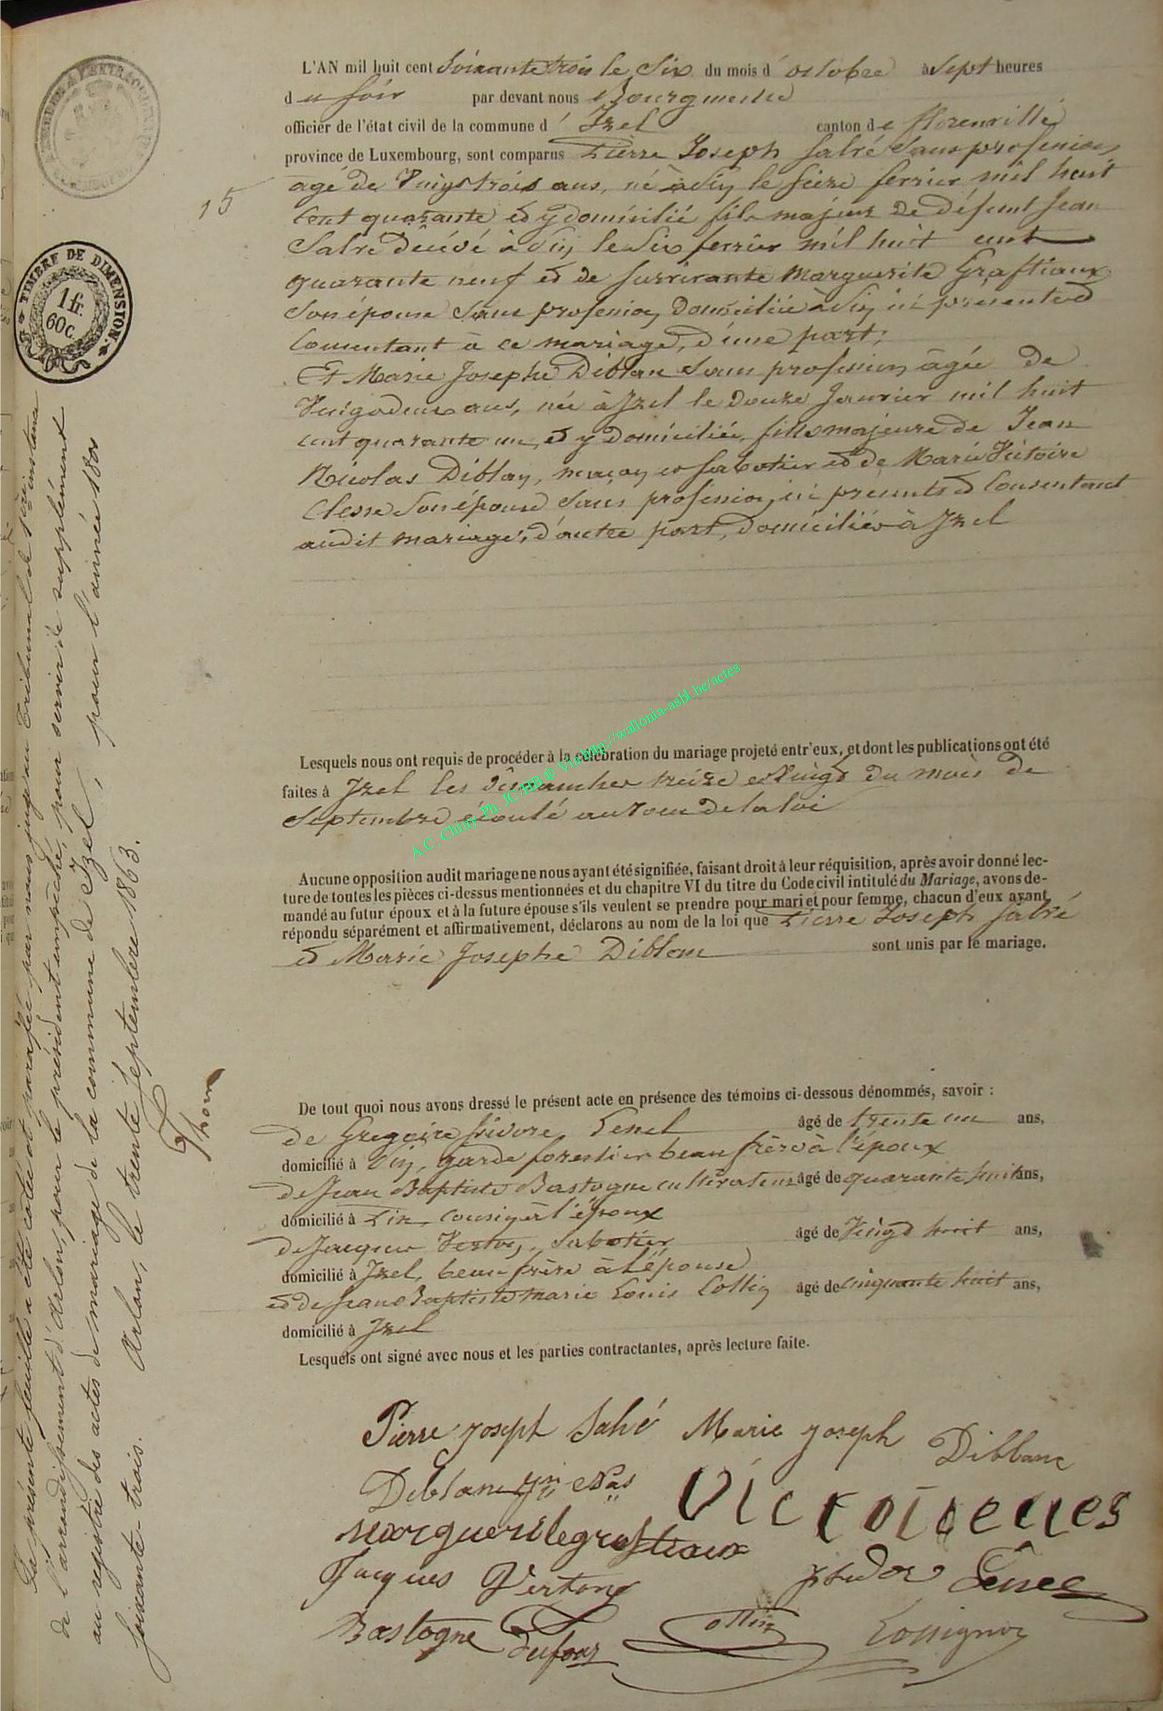 L'AN mil huit cent Soixante trois le Six du mois d'octobre à Sept heures
du soir par devant nous Bourgmestre
officier de l'état civil de la commune d'Izel canton de florenville
province de Luxembourg, sont comparus Pierre Joseph Salré Sans profession,
15
agé de Vingt trois ans, né à le seize ferrier mil huit
Cent quarante et y domicilié fils majeur de défunt Jean
Salré décédé à le Six ferrier mil huit cent
quarante neuf et de survivante Marguerite Grastiaux
Son épouse Sans profession, domiciliée à ici présente et
Consentant à ce mariage, d'une part;
Et Marie Josephe Diblanc Sans profession, âgée de
Vingt deux ans, née à Izel le douze Janvier mil huit
cent quarante un, et y domiciliée, fille majeure de Jean
Nicolas Diblanc, maçon et sabotier et de Marie Victoire
Clesse Son épouse Sans profession, ici présents et Consentant
audit mariage, d'autre part, domiciliés à Izel
Lesquels nous ont requis de procéder à la célébration du mariage projeté entr'eux, et dont les publications ont été
faites à Izel les Dimanches treize et Vingt du mois de
Septembre écoulé au Voeu de la loi
Aucune opposition audit mariage ne nous ayant été signifiée, faisant droit à leur réquisition, après avoir donné lec-
ture de toutes les pièces ci-dessus mentionnées et du chapitre VI du titre du Code civil intitulé du Mariage, avons de-
mandé au futur époux et à la future épouse s'ils veulent se prendre pour mari et pour femme, chacun d'eux ayant
répondu séparément et affirmativement, déclarons au nom de la loi que Pierre Joseph Salré
et Marie Josephe Diblanc sont unis par le mariage.
De tout quoi nous avons dressé le présent acte en présence des témoins ci-dessous dénommés, savoir :
de Gregoire Isidore Lenel âgé de trente un ans,
domicilié à garde forestier beau frère à l'époux
de Jean Baptiste Bastogne cultivateur âgé de quarante huit ans,
domicilié à cousin à l'époux
de Jacques Sabotier âgé de Vingt huit ans,
domicilié à Izel, beau frère à l'épouse
et de Jean Baptiste Marie Louis Collin âgé de cinquante huit ans,
domicilié à Izel
Lesquels ont signé avec nous et les parties contractantes, après lecture faite.
Pierre Joseph Salré Marie Joseph Diblanc
Deblanc
Marguerite grastiaux
Jacques
Bastogne dufour Rossignon
TIMBRE DE DIMENSION.
1 fr.
60 c.
La présente feuille a été cotée et parafée par nous juge au tribunal de 1ère instance
de l'arrondissement d'Arlon, pour le président empêché, pour servir de supplément
au registre des actes de mariage de la commune de Izel, pour l'année 1800
soixante-trois. Arlon, le trente Septembre 1863.
A.C. Chiny http://wallonia-asbl.be/actes